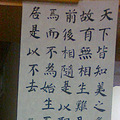 天下皆知美之
故有無相生難
前後相隨是以
焉而不為始生
居是以不去